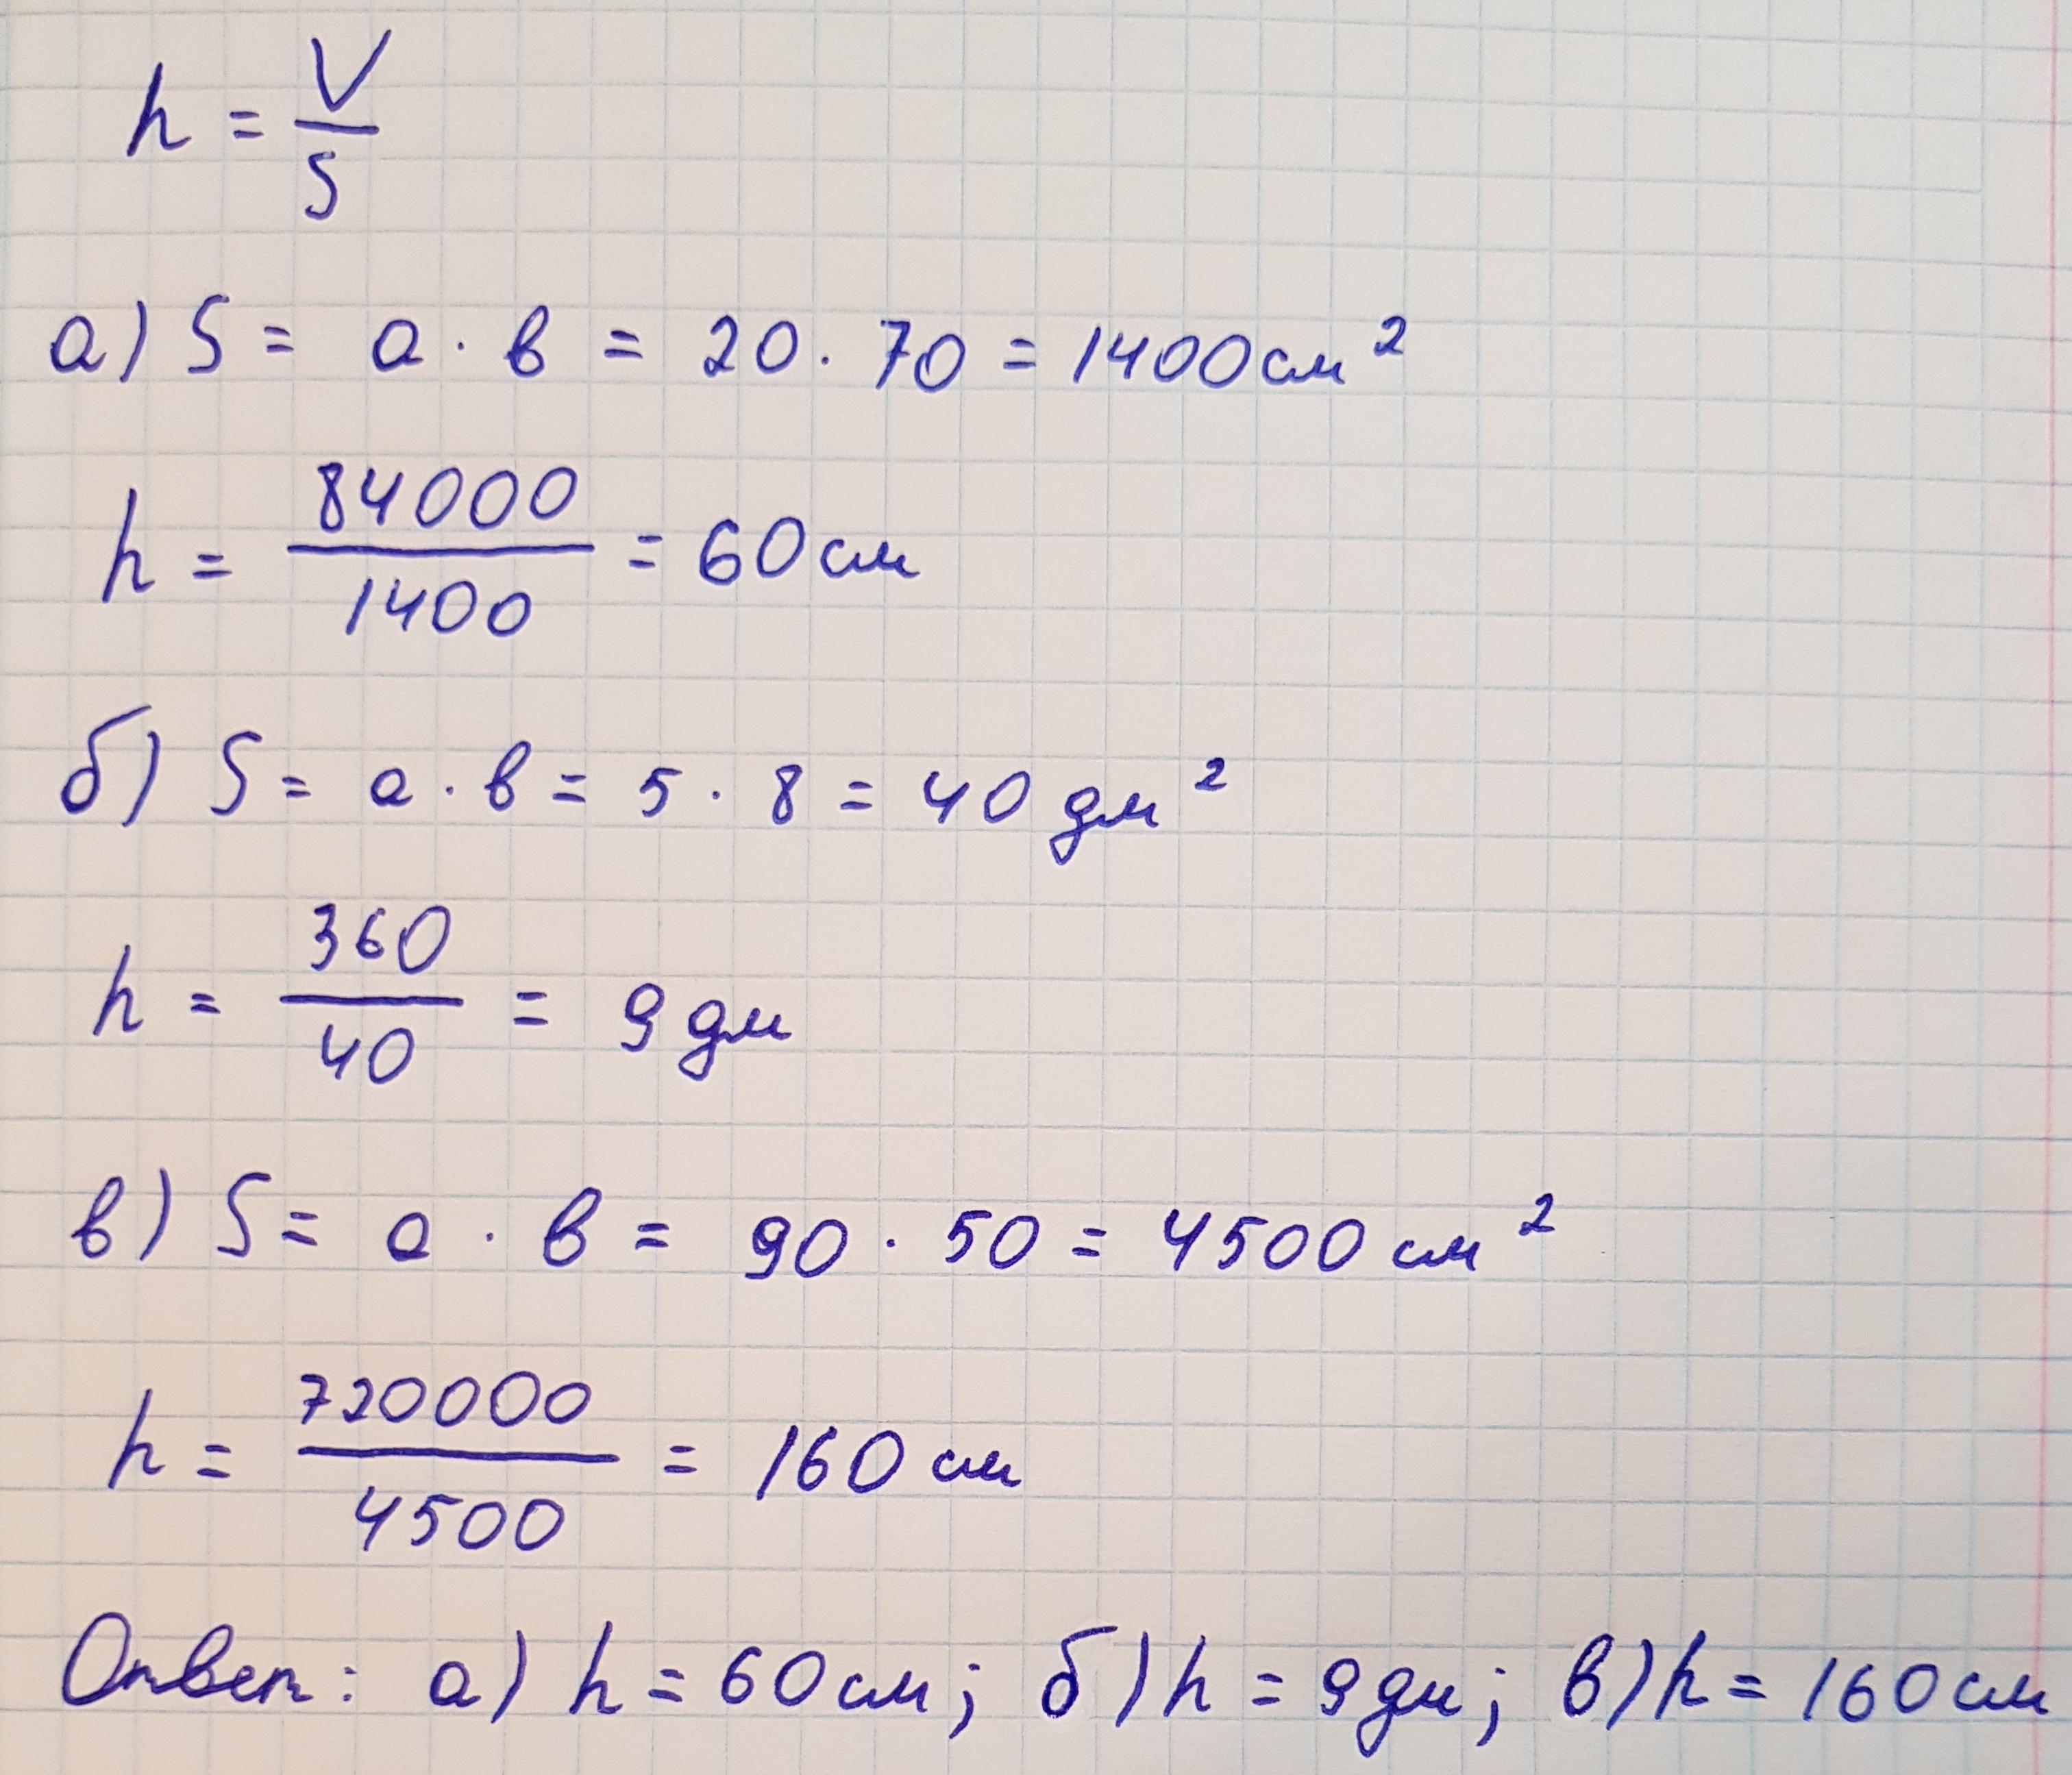 h = V/S
а) S = a · в = 20 · 70 = 1400 см²
h = 84000/1400 = 60 см
б) S = a · в = 5 · 8 = 40 дм²
h = 360/40 = 9 дм
в) S = a · в = 90 · 50 = 4500 см²
h = 720000/4500 = 160 см
Ответ: а) h = 60 см; б) h = 9 дм; в) h = 160 см